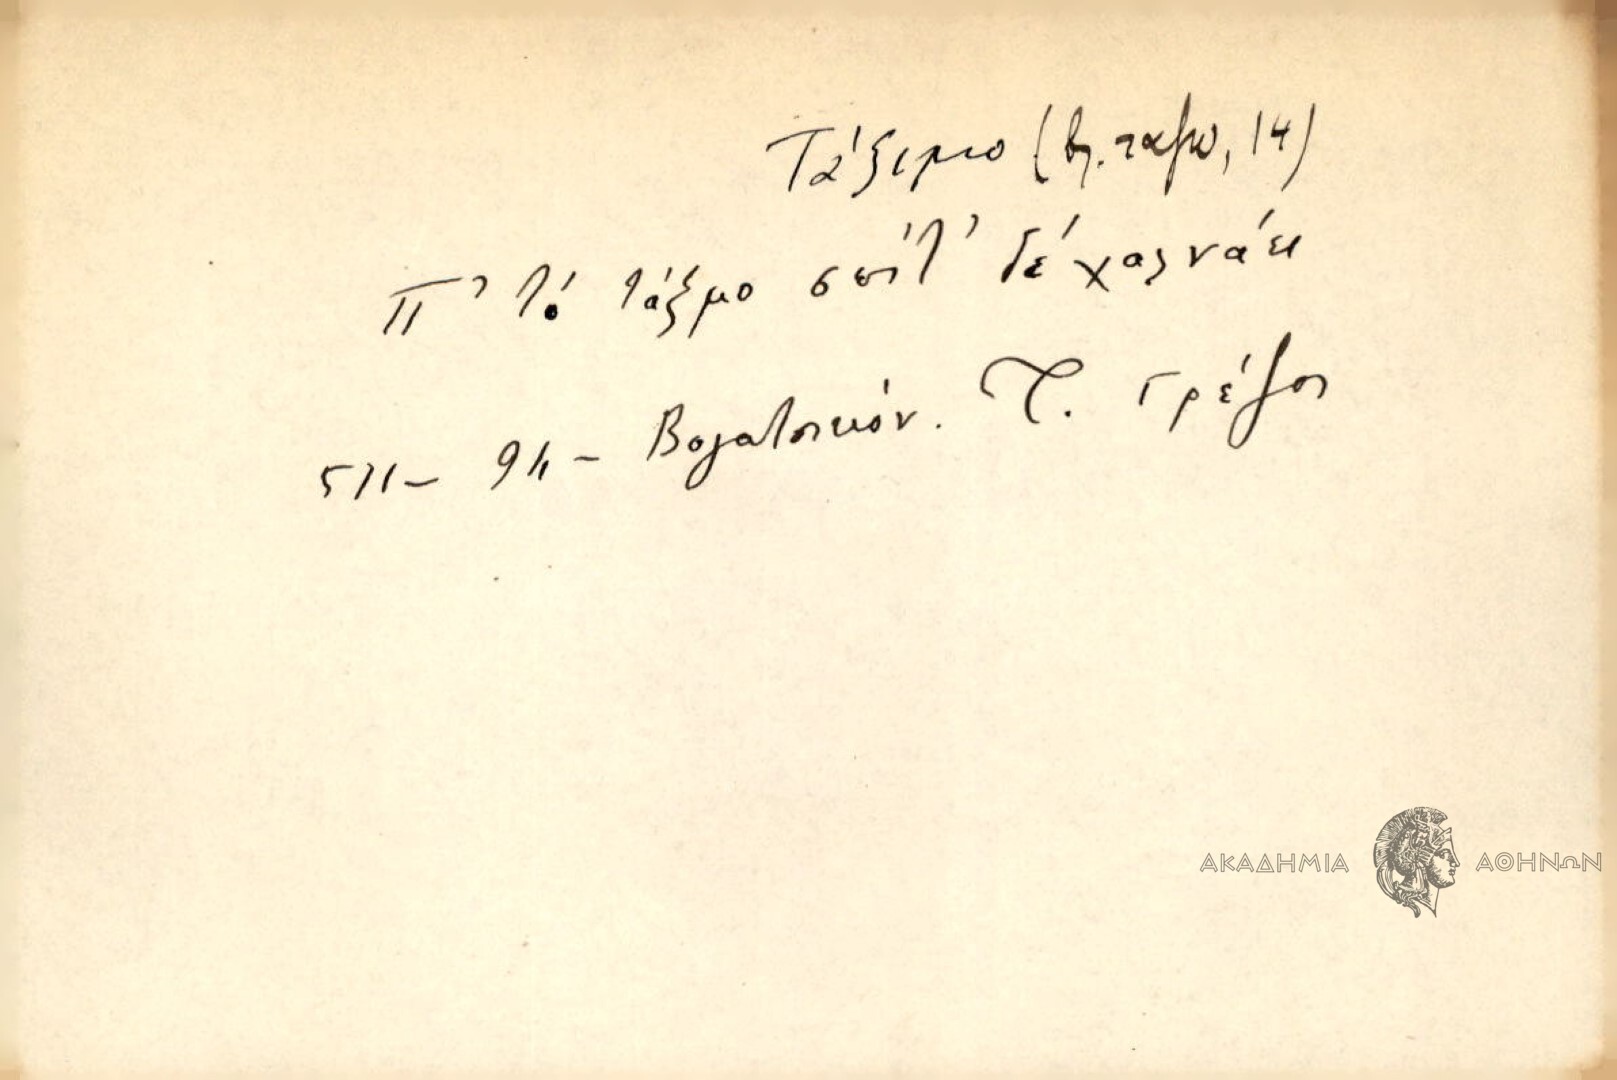 Τάξιμο (βλ. ταζω, 14)
Π' τό τάξμο σπίτ' δέ χαλνάει
511- 94 - Βογατσικόν. Τ. Γκρέζοι
ΑΚΑΔΗΜΙΑ ΑΘΗΝΩΝ